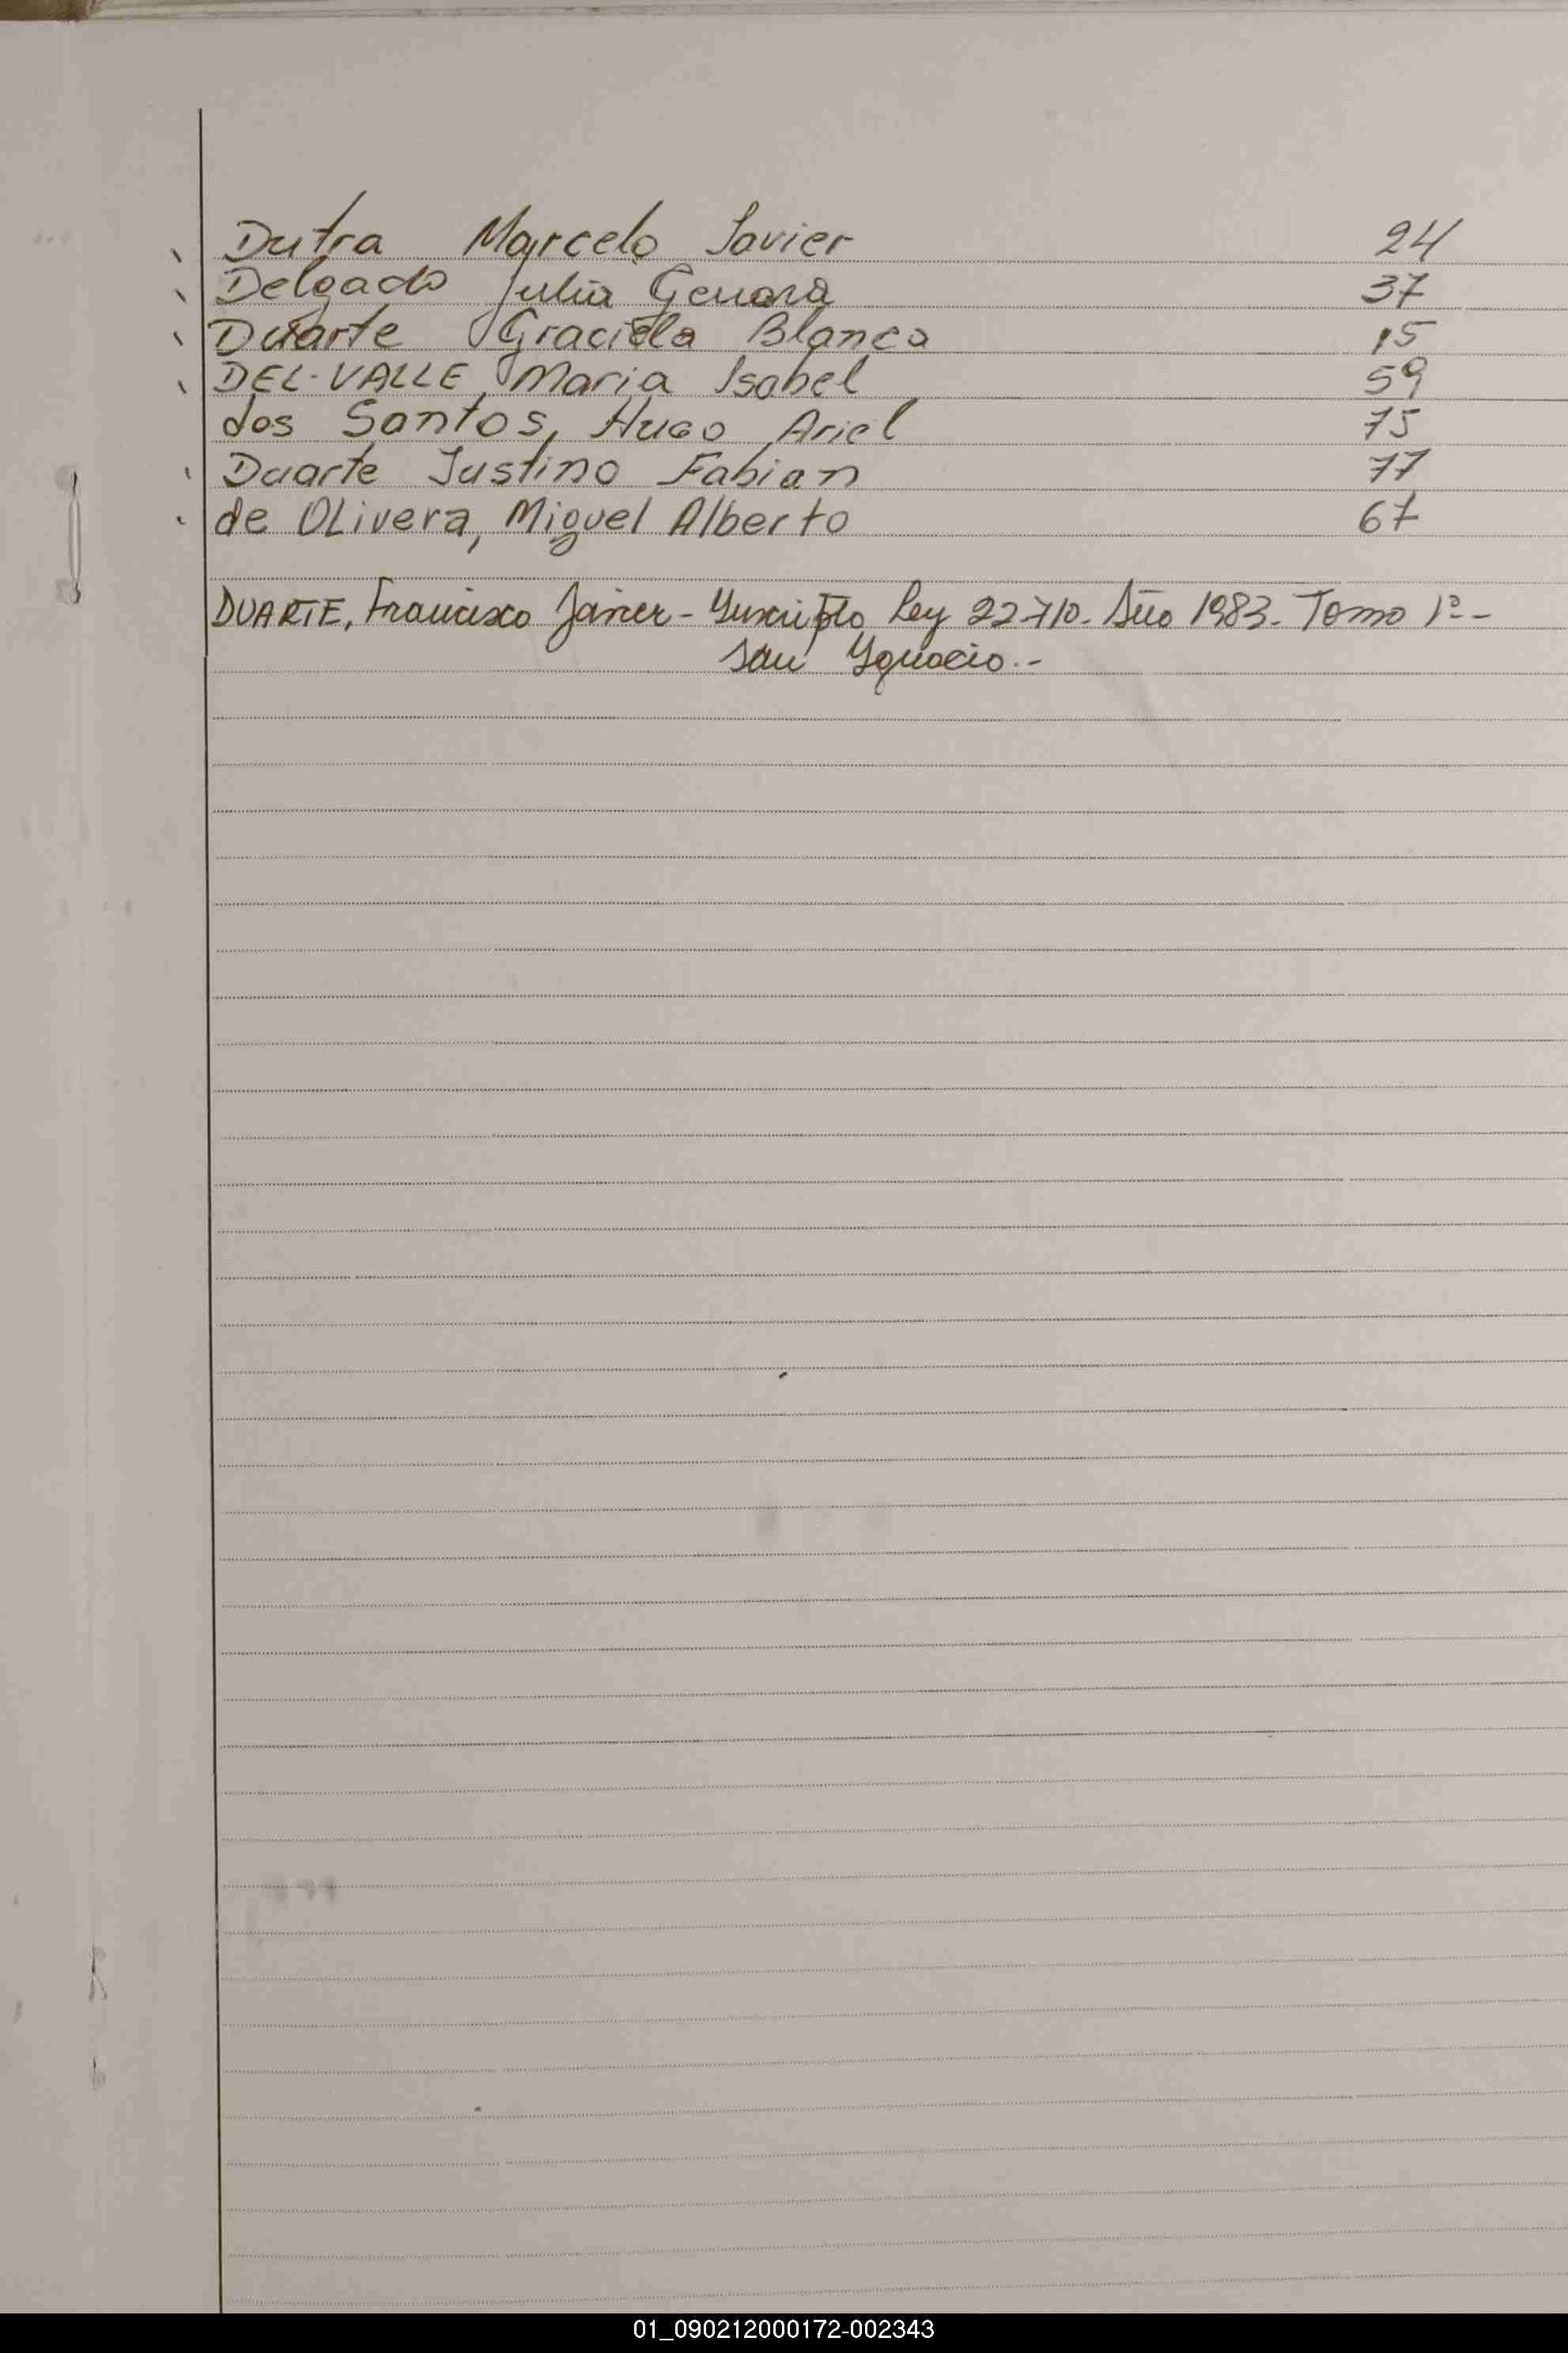 Dutra Marcelo Javier 24
Delgado Julia Genara 37
Duarte Graciela Blanca 15
DEL-VALLE, Maria Isabel 59
dos Santos, Hugo Ariel 75
Duarte Justino Fabian 77
de OLivera, Miguel Alberto 67
DUARTE, Francisco Javier - Ynscripto Ley 22.710. Año 1983. Tomo 1º -
San Ygnacio.-
01_090212000172-002343